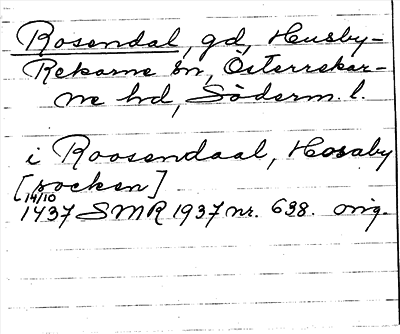 Rosendal, gd, Husby-
Rekarne sn, Österrekar-
ne hd, Söderm. l.
i Roosendaal, Hosaby
[socken]
14/10
1437 SMR 1937 nr. 638. orig.